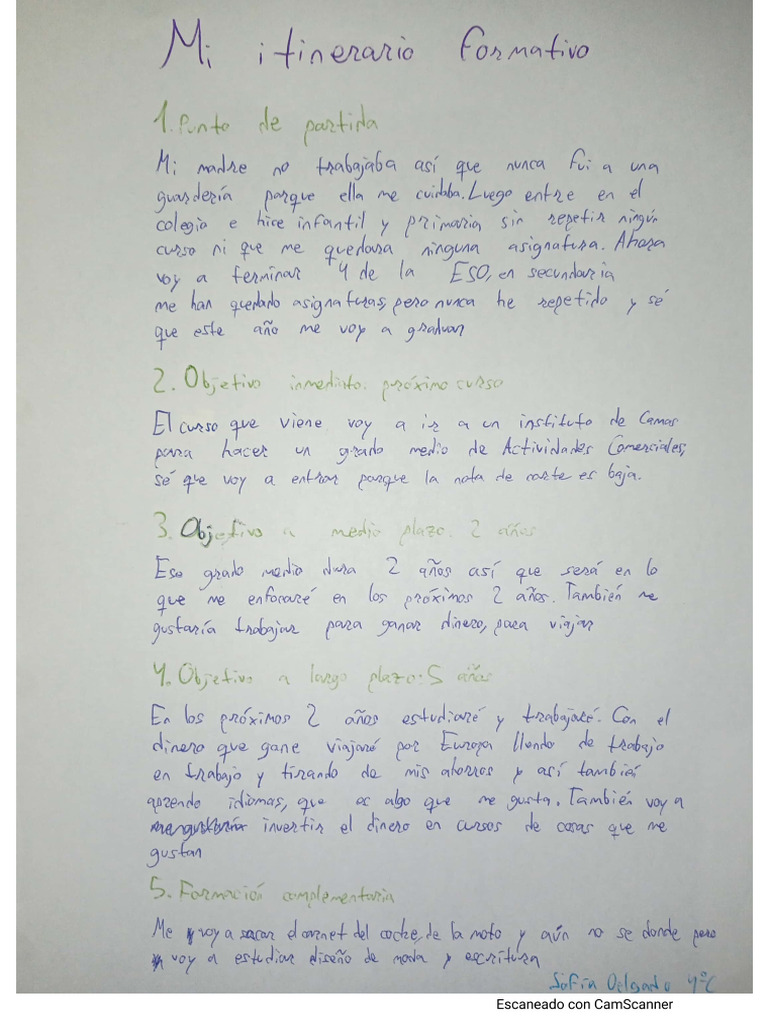 Mi itinerario formativo
1. Punto de partida
Mi madre no trabajaba así que nunca fui a una
guardería porque ella me cuidaba. Luego entre en el
colegio e hice infantil y primaria sin repetir ningún
curso ni que me quedara ninguna asignatura. Ahora
voy a terminar 4 de la ESO, en secundaria
me han quedado asignaturas, pero nunca he repetido y sé
que este año me voy a graduar
2. Objetivo inmediato: próximo curso
El curso que viene voy a ir a un instituto de Camas
para hacer un grado medio de Actividades Comerciales,
sé que voy a entrar porque la nota de corte es baja.
3. Objetivo a medio plazo: 2 años
Ese grado medio dura 2 años así que será en lo
que me enfocaré en los próximos 2 años. También me
gustaría trabajar para ganar dinero, para viajar
4. Objetivo a largo plazo: 5 años
En los próximos 2 años estudiaré y trabajaré. Con el
dinero que gane viajaré por Europa llendo de trabajo
en trabajo y tirando de mis ahorros y así también
aprendo idiomas, que es algo que me gusta. También voy a
invertir el dinero en cursos de cosas que me
gustan
5. Formación complementaria
Me voy a sacar el carnet del coche, de la moto y aún no se donde pero
voy a estudiar diseño de moda y escritura
Sofía Delgado 4ºC
Escaneado con CamScanner